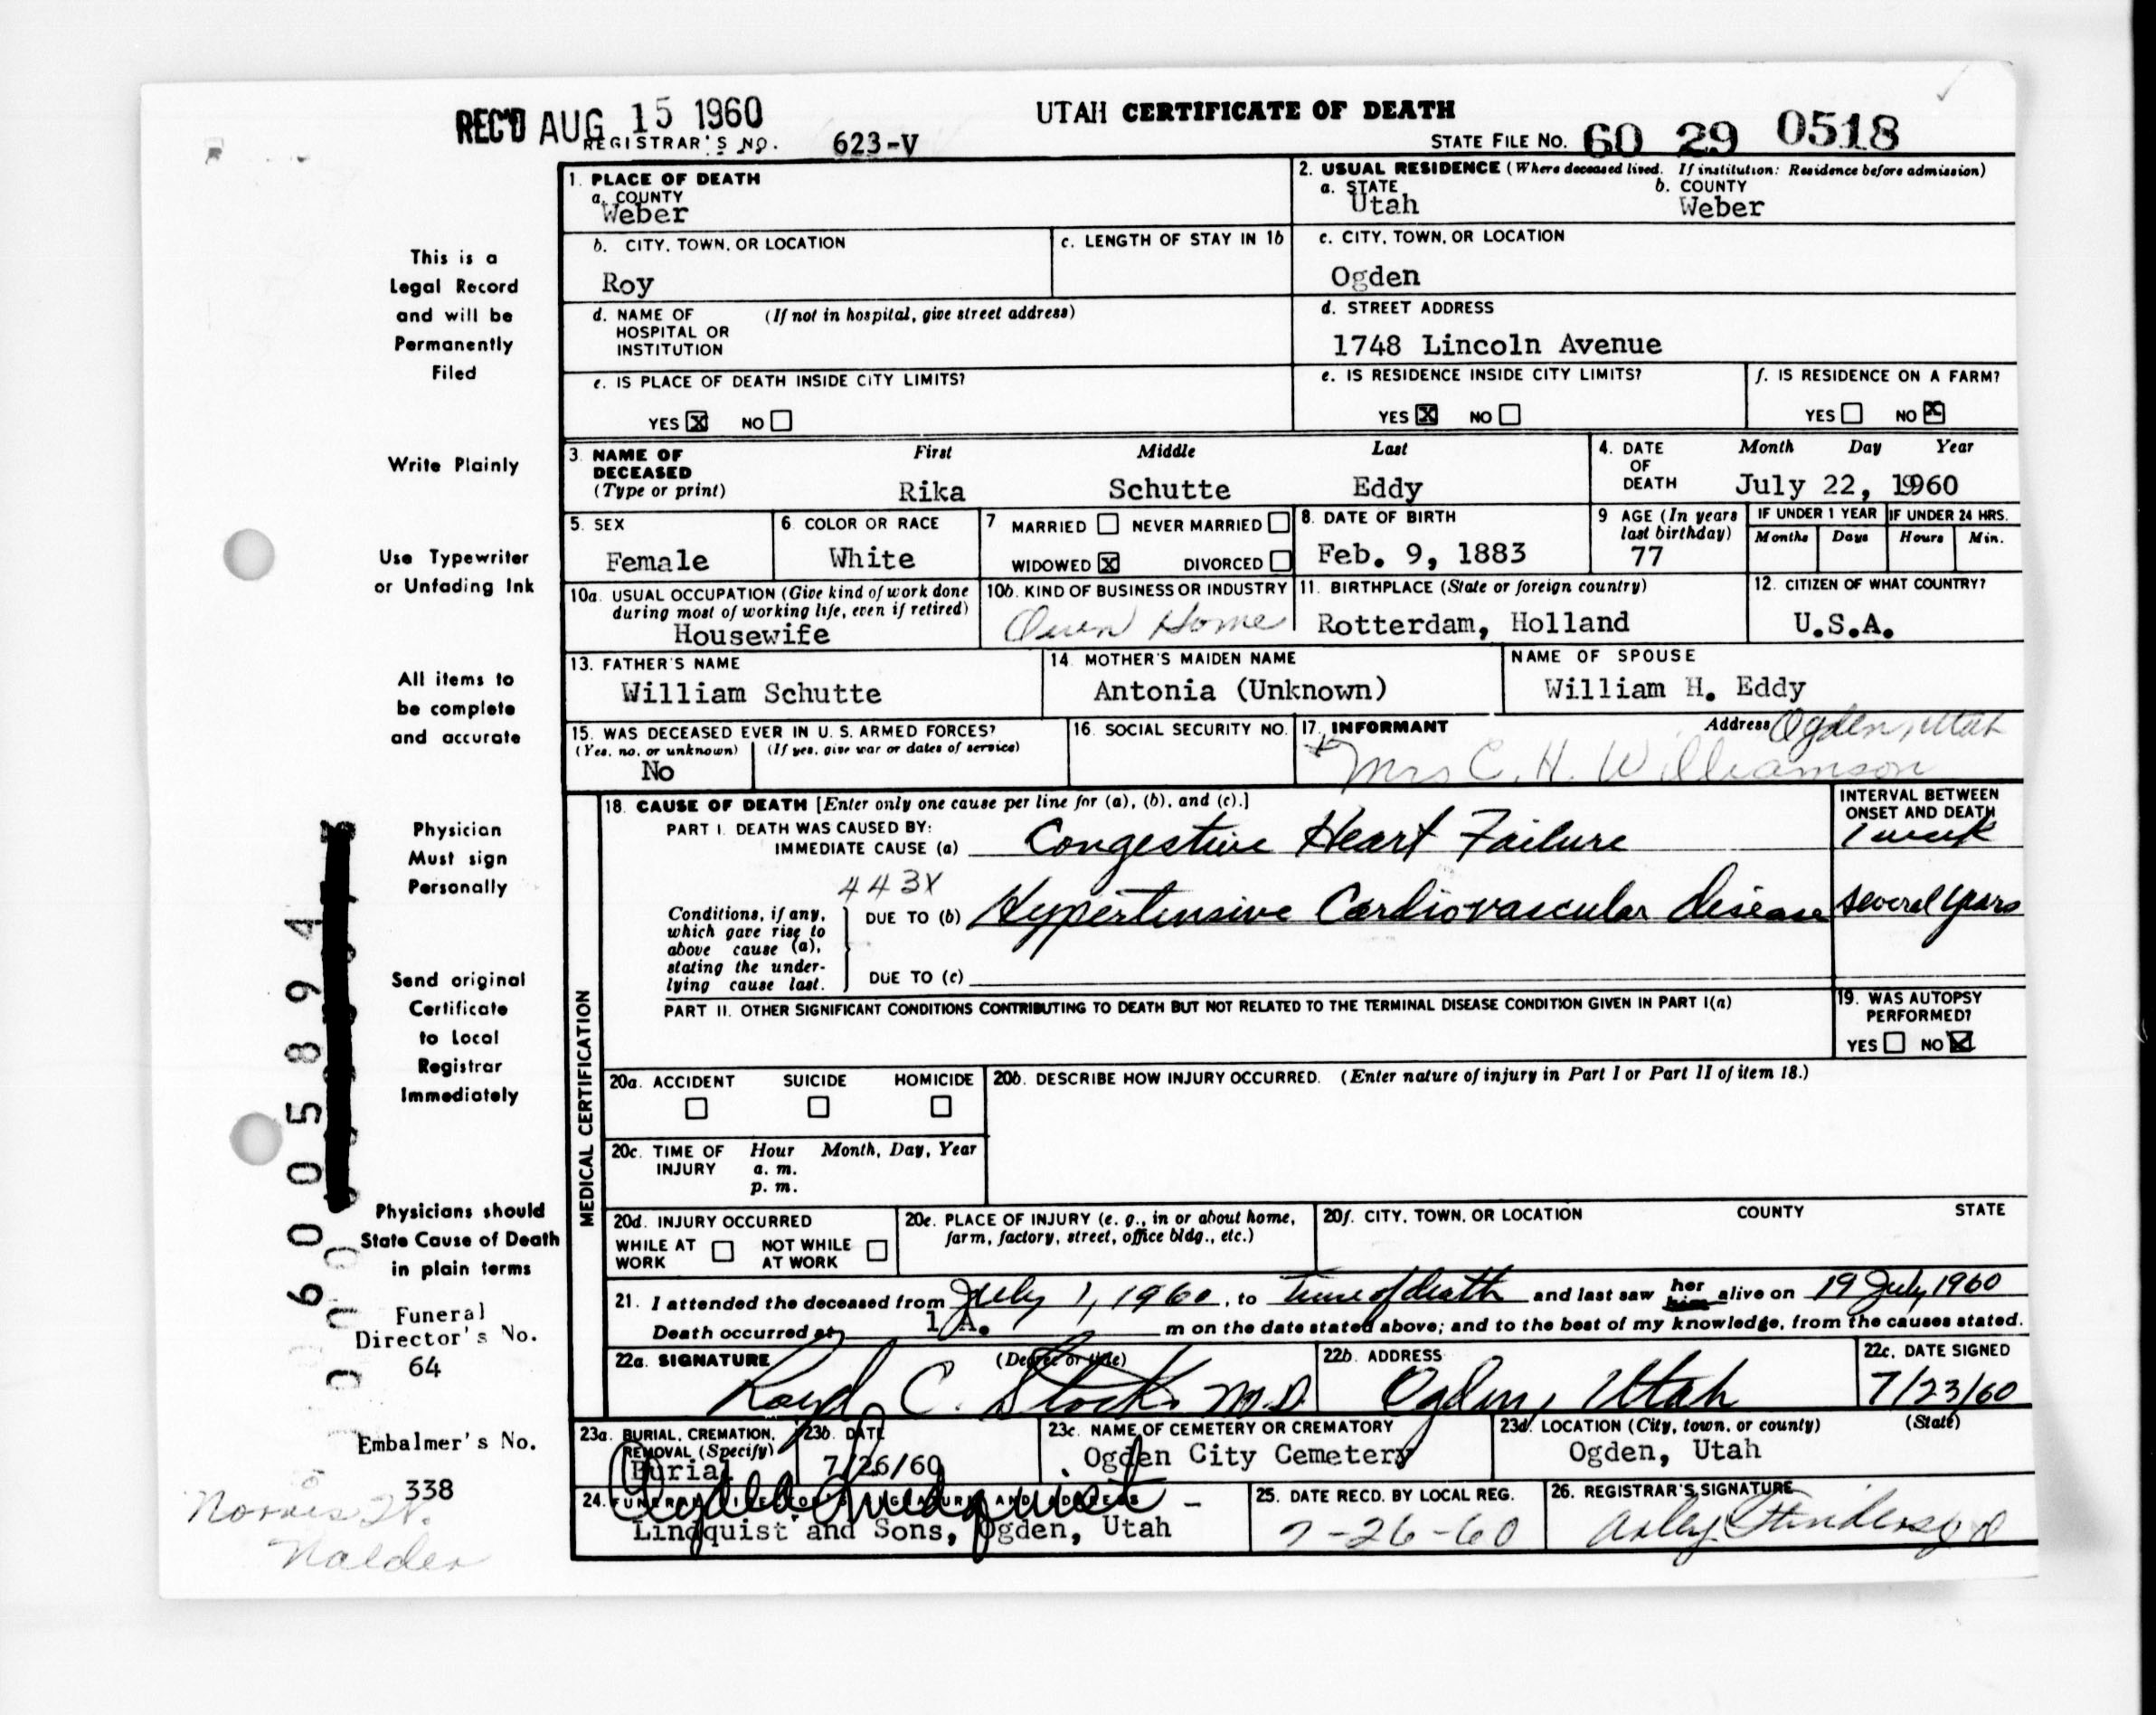 REC'D AUG 15 1960
UTAH CERTIFICATE OF DEATH
REGISTRAR'S NO. 623-V
STATE FILE NO. 60 29 0518
1. PLACE OF DEATH
a. COUNTY
Weber
2. USUAL RESIDENCE (Where deceased lived. If institution: Residence before admission)
a. STATE b. COUNTY
Utah Weber
b. CITY, TOWN, OR LOCATION
Roy
c. LENGTH OF STAY IN 1b
c. CITY, TOWN, OR LOCATION
Ogden
d. NAME OF (If not in hospital, give street address)
HOSPITAL OR
INSTITUTION
d. STREET ADDRESS
1748 Lincoln Avenue
e. IS PLACE OF DEATH INSIDE CITY LIMITS?
YES X NO
e. IS RESIDENCE INSIDE CITY LIMITS?
YES X NO
f. IS RESIDENCE ON A FARM?
YES NO X
3. NAME OF DECEASED
(Type or print)
First Middle Last
Rika Schutte Eddy
4. DATE OF DEATH
Month Day Year
July 22, 1960
5. SEX
Female
6. COLOR OR RACE
White
7 MARRIED NEVER MARRIED
WIDOWED X DIVORCED
8. DATE OF BIRTH
Feb. 9, 1883
9 AGE (In years
last birthday)
77
IF UNDER 1 YEAR
Months Days
IF UNDER 24 HRS.
Hours Min.
10a. USUAL OCCUPATION (Give kind of work done
during most of working life, even if retired)
Housewife
10b. KIND OF BUSINESS OR INDUSTRY
Own Home
11. BIRTHPLACE (State or foreign country)
Rotterdam, Holland
12. CITIZEN OF WHAT COUNTRY?
U.S.A.
13. FATHER'S NAME
William Schutte
14. MOTHER'S MAIDEN NAME
Antonia (Unknown)
NAME OF SPOUSE
William H. Eddy
15. WAS DECEASED EVER IN U. S. ARMED FORCES?
(Yes, no, or unknown) (If yes, give war or dates of service)
No
16. SOCIAL SECURITY NO.
17. INFORMANT Address Ogden, Utah
Mrs C. H. Williamson
MEDICAL CERTIFICATION
18. CAUSE OF DEATH [Enter only one cause per line for (a), (b), and (c).]
PART I. DEATH WAS CAUSED BY:
IMMEDIATE CAUSE (a) Congestive Heart Failure
INTERVAL BETWEEN
ONSET AND DEATH
1 week
443X
Conditions, if any,
which gave rise to
above cause (a),
stating the under-
lying cause last.
DUE TO (b) Hypertensive Cardiovascular disease several years
DUE TO (c)
PART II. OTHER SIGNIFICANT CONDITIONS CONTRIBUTING TO DEATH BUT NOT RELATED TO THE TERMINAL DISEASE CONDITION GIVEN IN PART I(a)
19. WAS AUTOPSY
PERFORMED?
YES NO X
20a. ACCIDENT SUICIDE HOMICIDE
20b. DESCRIBE HOW INJURY OCCURRED. (Enter nature of injury in Part I or Part II of item 18.)
20c. TIME OF INJURY
Hour Month, Day, Year
a. m.
p. m.
20d. INJURY OCCURRED
WHILE AT WORK NOT WHILE AT WORK
20e. PLACE OF INJURY (e. g., in or about home,
farm, factory, street, office bldg., etc.)
20f. CITY, TOWN, OR LOCATION COUNTY STATE
21. I attended the deceased from July 1, 1960, to time of death and last saw her him alive on 19 July, 1960
Death occurred at 1 A. m on the date stated above; and to the best of my knowledge, from the causes stated.
22a. SIGNATURE (Degree or title)
C. M.D.
22b. ADDRESS
Ogden, Utah
22c. DATE SIGNED
7/23/60
23a. BURIAL, CREMATION,
REMOVAL (Specify)
Burial
23b. DATE
7/26/60
23c. NAME OF CEMETERY OR CREMATORY
Ogden City Cemetery
23d. LOCATION (City, town, or county) (State)
Ogden, Utah
24. FUNERAL DIRECTOR'S SIGNATURE AND ADDRESS
Lindquist and Sons, Ogden, Utah
25. DATE RECD. BY LOCAL REG.
7-26-60
26. REGISTRAR'S SIGNATURE
This is a
Legal Record
and will be
Permanently
Filed
Write Plainly
Use Typewriter
or Unfading Ink
All items to
be complete
and accurate
Physician
Must sign
Personally
Send original
Certificate
to Local
Registrar
Immediately
Physicians should
State Cause of Death
in plain terms
Funeral
Director's No.
64
Embalmer's No.
338
600005894